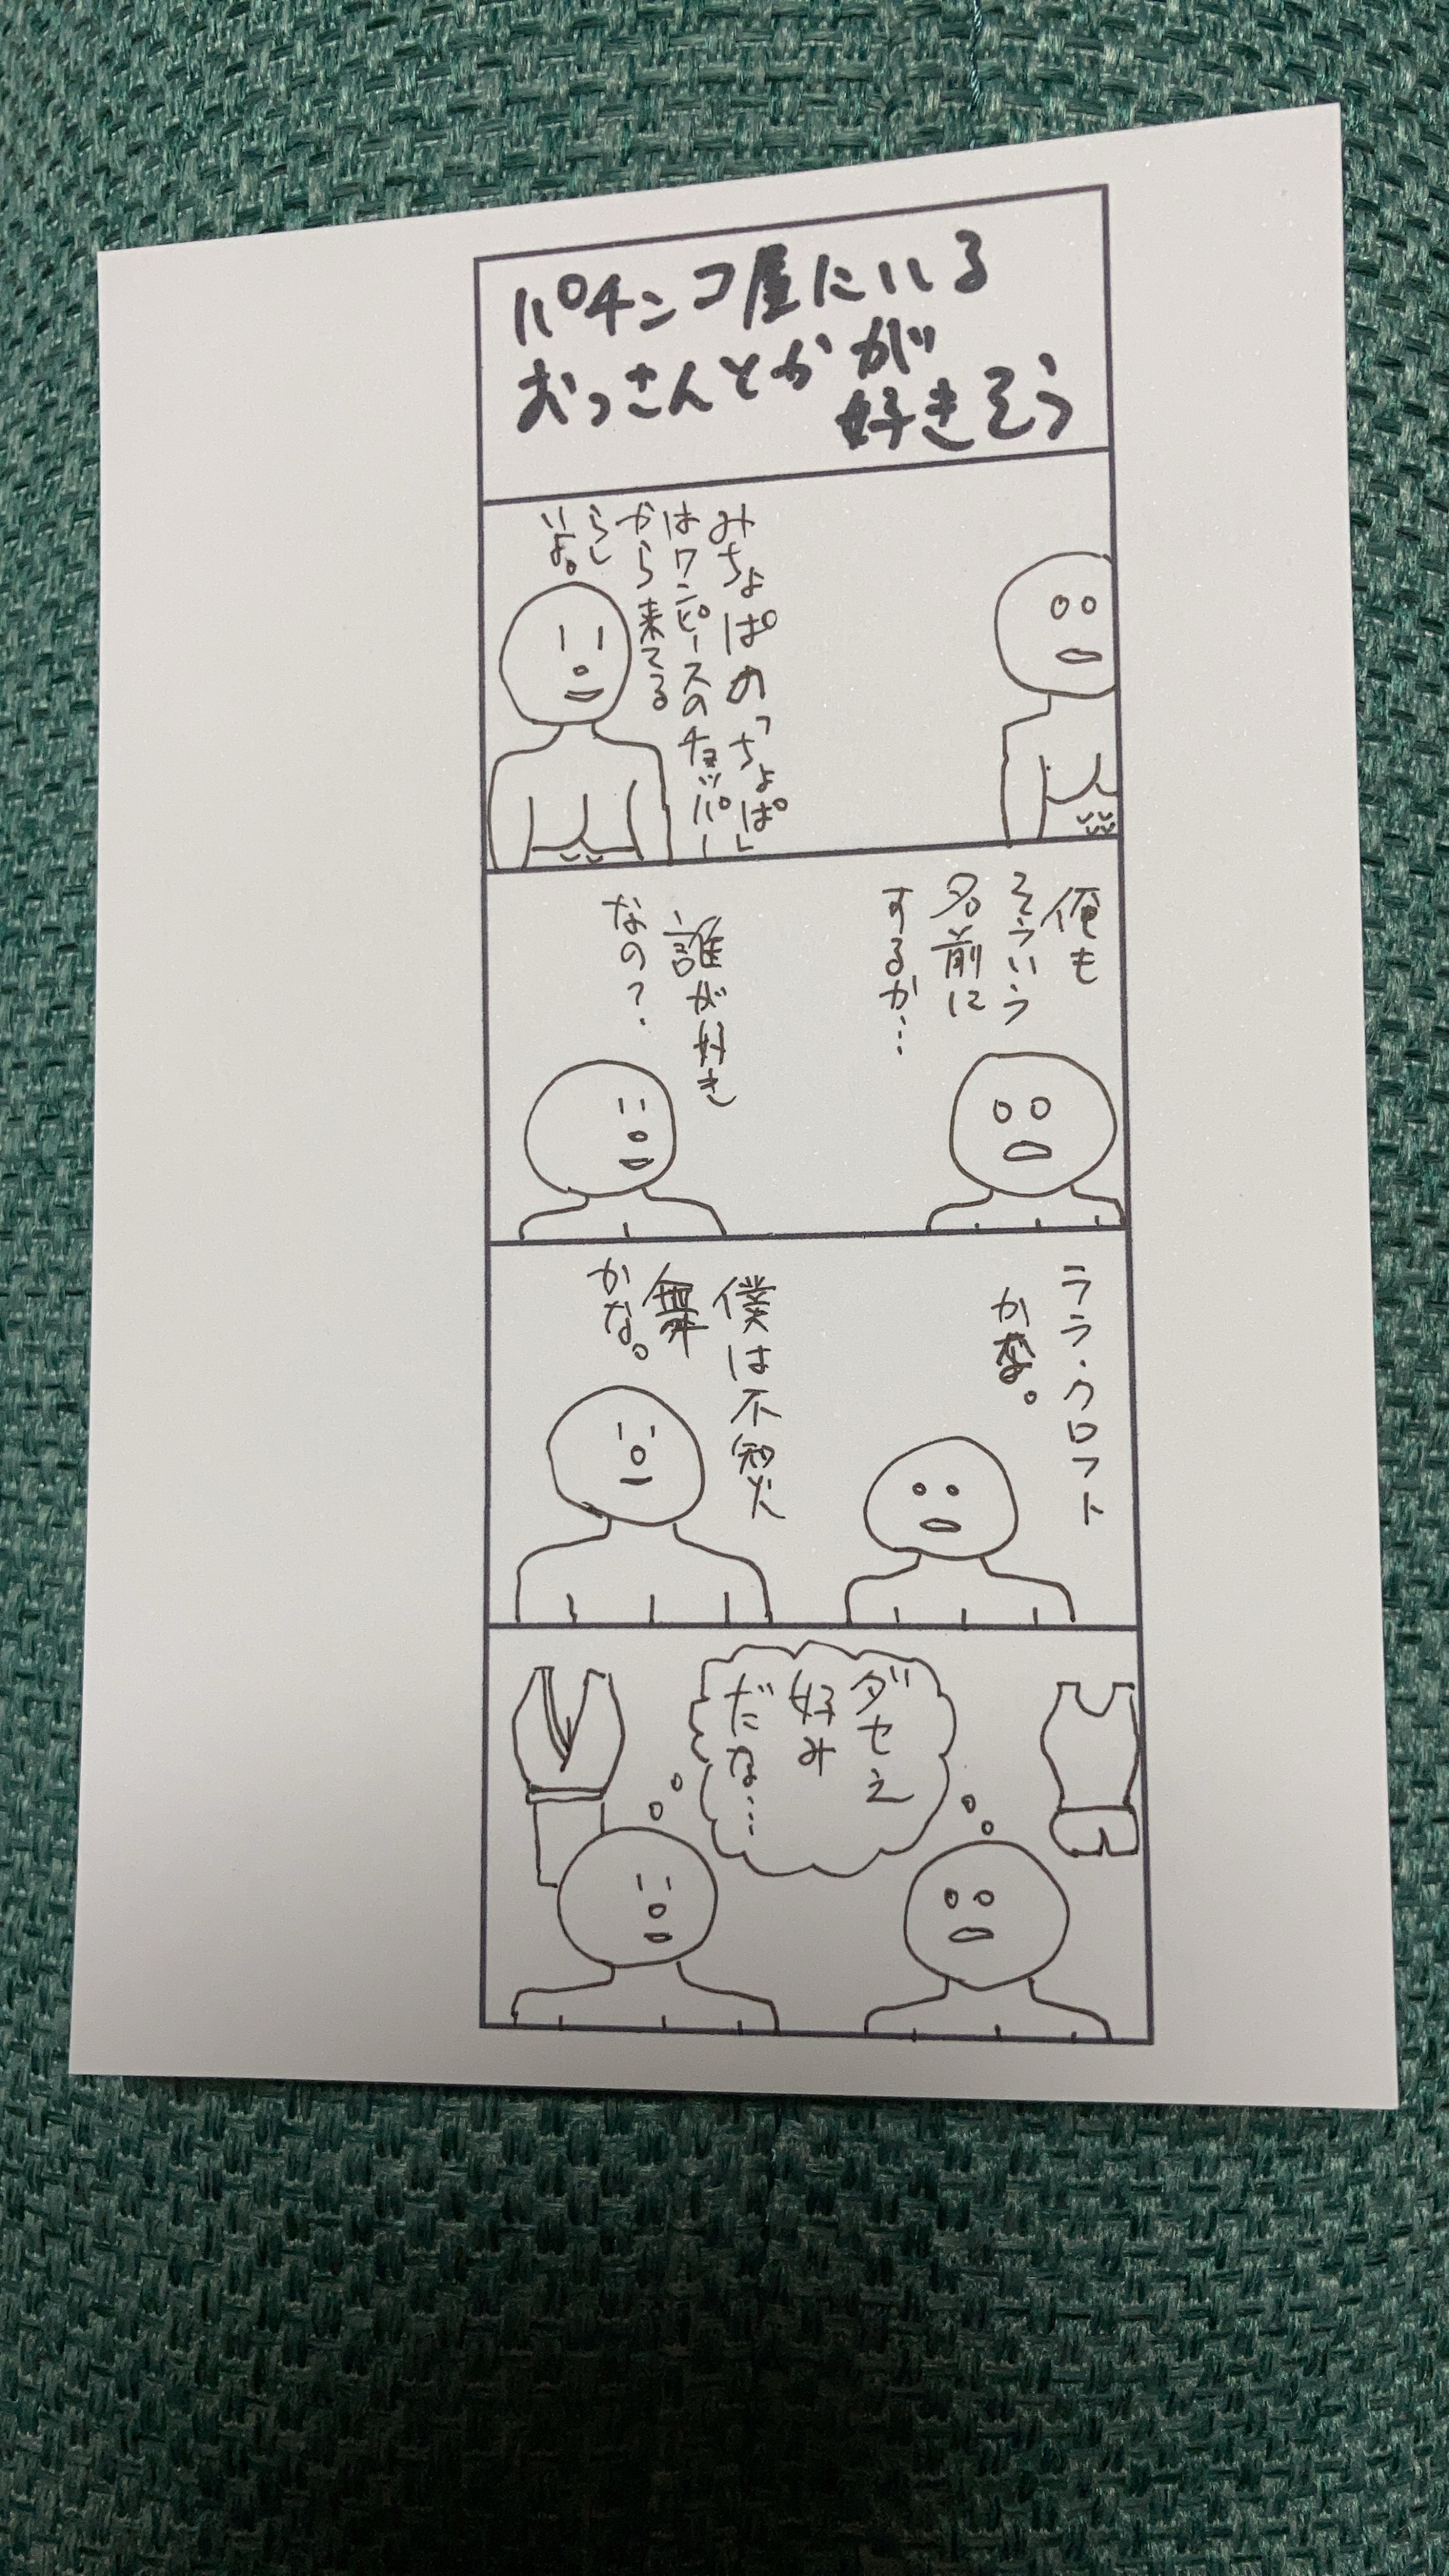 パチンコ屋にいる
おっさんとかが
好きそう
みちょぱの「ちょぱ」
はワンピースのチョッパー
から来てる
らし
いよ。
俺も
そういう
名前に
するか…
誰が好き
なの?
ララ・クロフト
かな。
僕は不知火
舞
かな。
ダセえ
好み
だな…